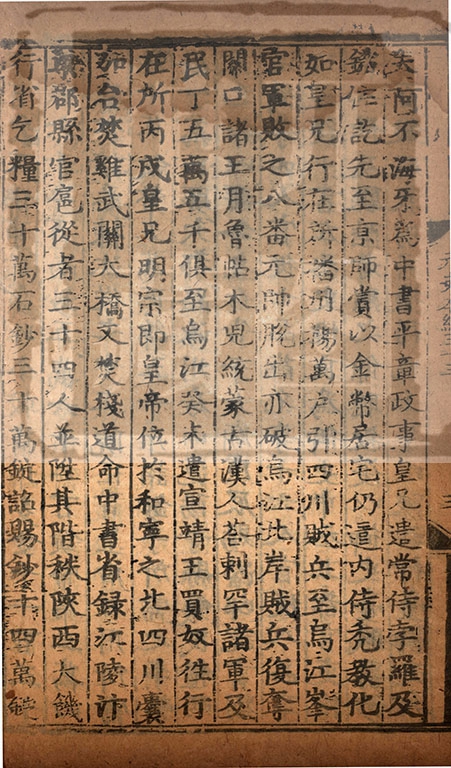 夫阿不海牙為中書平章政事皇兄遣常侍孛羅及
鐵住訖先至京師賞以金幣居宅仍遣內侍禿教化
如皇兄行在所播州楊萬戶引四川賊兵至烏江峯
官軍敗之八番元帥脫出亦破烏江北岸賊兵復奪
關口諸王月魯帖木兒統蒙古漢人荅剌罕諸軍及
民丁五萬五千俱至烏江癸未遣宣靖王買奴往行
在所丙戌皇兄明宗即皇帝位於和寧之北四川囊
加台焚雞武關大橋又焚棧道命中書省録江陵汴
梁郡縣官扈從者三十四人並陞其階秩陝西大饑
行省乞糧三十萬石鈔三十萬錠詔賜鈔十四萬錠